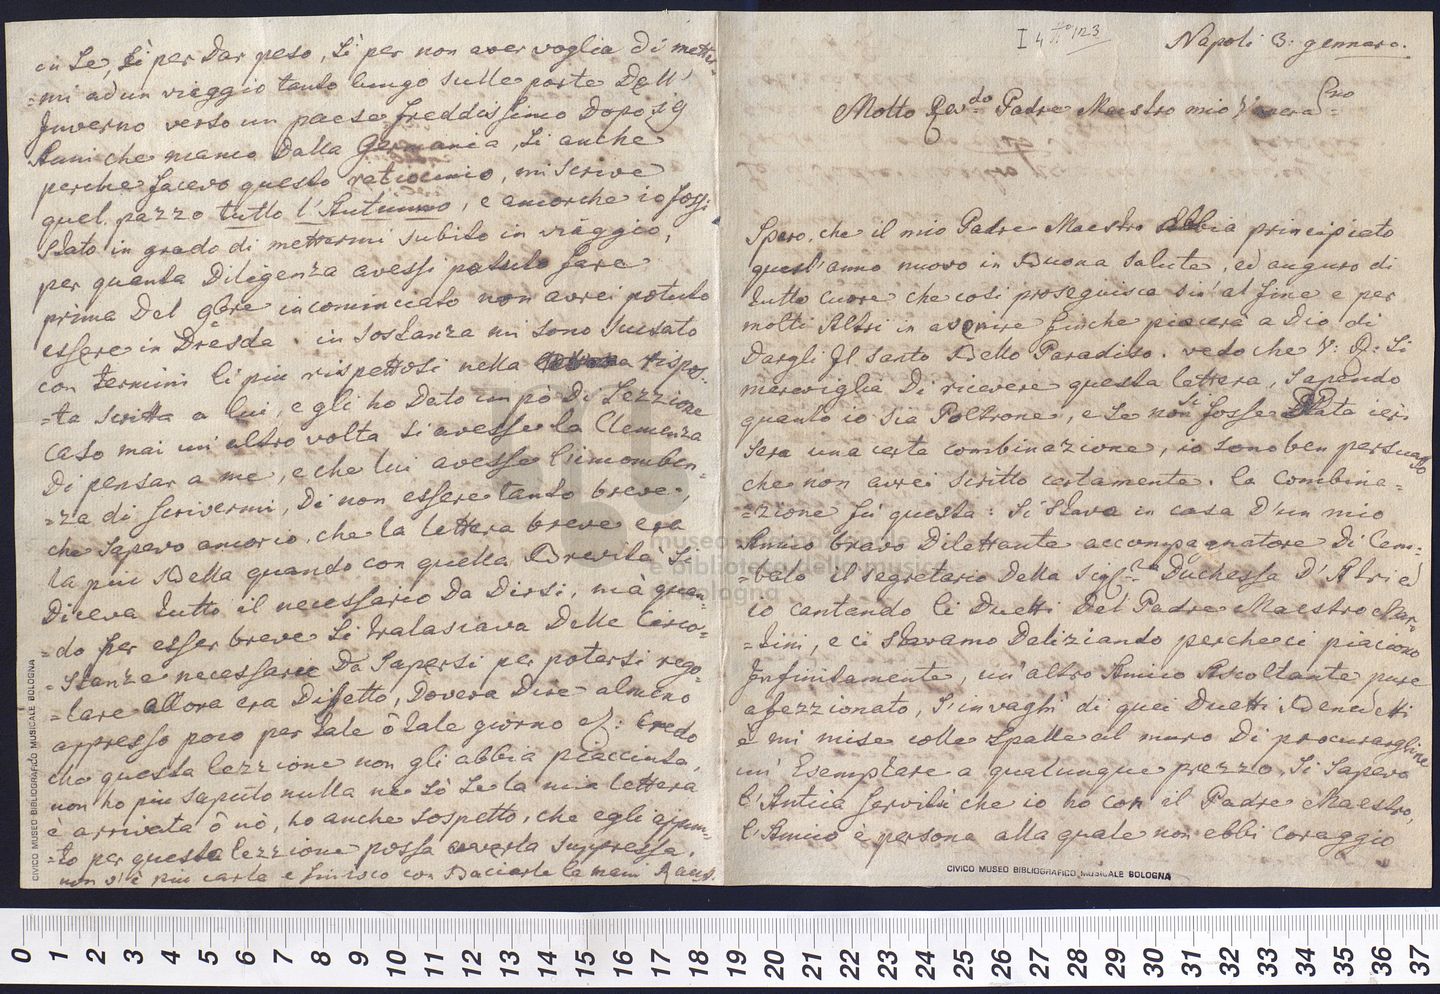 in Se, Sì per dar peso, Sì per non aver voglia di metter-
=mi ad un viaggio tanto lungo sulle porte dell'
Inverno verso un paese freddissimo dopo 19
Anni che manco dalla Germania, Sì anche
perche facevo questo ratiocinio, mi scrive
quel pazzo tutto l'Autunno, e ancorche io fossi
Stato in grado di mettermi subito in viaggio,
per quanta diligenza avessi potuto fare
prima del incominciato non avrei potuto
essere in Dresda. in sostanza mi sono scusato
con termini li piu rispettosi nella rispos-
=ta scritta a lui, e gli ho dato un pò di Lezzione
caso mai un altro volta si avesse la Clemenza
di pensar a me, e che lui avesse l'incomben-
=za di scrivermi, di non essere tanto breve,
che sapevo ancor io, che la lettera breve era
la piu Bella quando con quella Brevità Si
diceva tutto il necessario da dirsi, mà quan-
=do per esser breve Si tralasciava delle Circo-
=stanze necessarie da sapersi per potersi rego-
=lare allora era diffetto, doveva dire almeno
appresso poco per tale ô tale giorno Credo
che questa lezzione non gli abbia piacciuta,
non ho piu saputo nulla ne sò se la mia lettera
è arrivata ô nò, ho anche sospetto, che egli appun-
=to per questa lezzione possa averla suppressa.
non v'è piu carta e finisco con Baciarle la mani Raaff.
I 4 123
Napoli 3. gennaro.
Molto Rev.do Padre Maestro mio
Spero, che il mio Padre Maestro abbia principiato
quest'anno nuovo in Buona salute, ed auguro di
tutto cuore che così proseguisca sin' al fine e per
molti Altri in avvenire finche piacerà a Dio di
dargli Il santo Bello Paradiso. vedo che V: R: Si
meraviglia di ricevere questa lettera, sapendo
quanto io sia Poltrone, e se non si fosse Data ieri
sera una certa combinazione, io sono ben persuaso
che non avrei scritto certamente. la Combina-
=zione fù questa: Si stava in casa d'un mio
Amico bravo Dilettante accompagnatore di Cem-
=balo il segretario della Sig.ra Duchessa d'
io cantando li Duetti del Padre Maestro Mar-
=tini, e ci stavamo deliziando perche ci piaciono
Infinitamente, un'altro Amico Ascoltante pure
afezzionato, S'invaghì di quei Duetti Benedetti
e mi mise colle spalle al muro di procurargliene
un' Esemplare a qualunque prezzo, Si sapeva
l'Antica servitù che io ho con il Padre Maestro,
l'Amico è persona alla quale non ebbi coraggio
CIVICO MUSEO BIBLIOGRAFICO MUSICALE BOLOGNA
CIVICO MUSEO BIBLIOGRAFICO MUSICALE BOLOGNA
museo internazionale
e biblioteca della musica
bologna
0 1 2 3 4 5 6 7 8 9 10 11 12 13 14 15 16 17 18 19 20 21 22 23 24 25 26 27 28 29 30 31 32 33 34 35 36 37